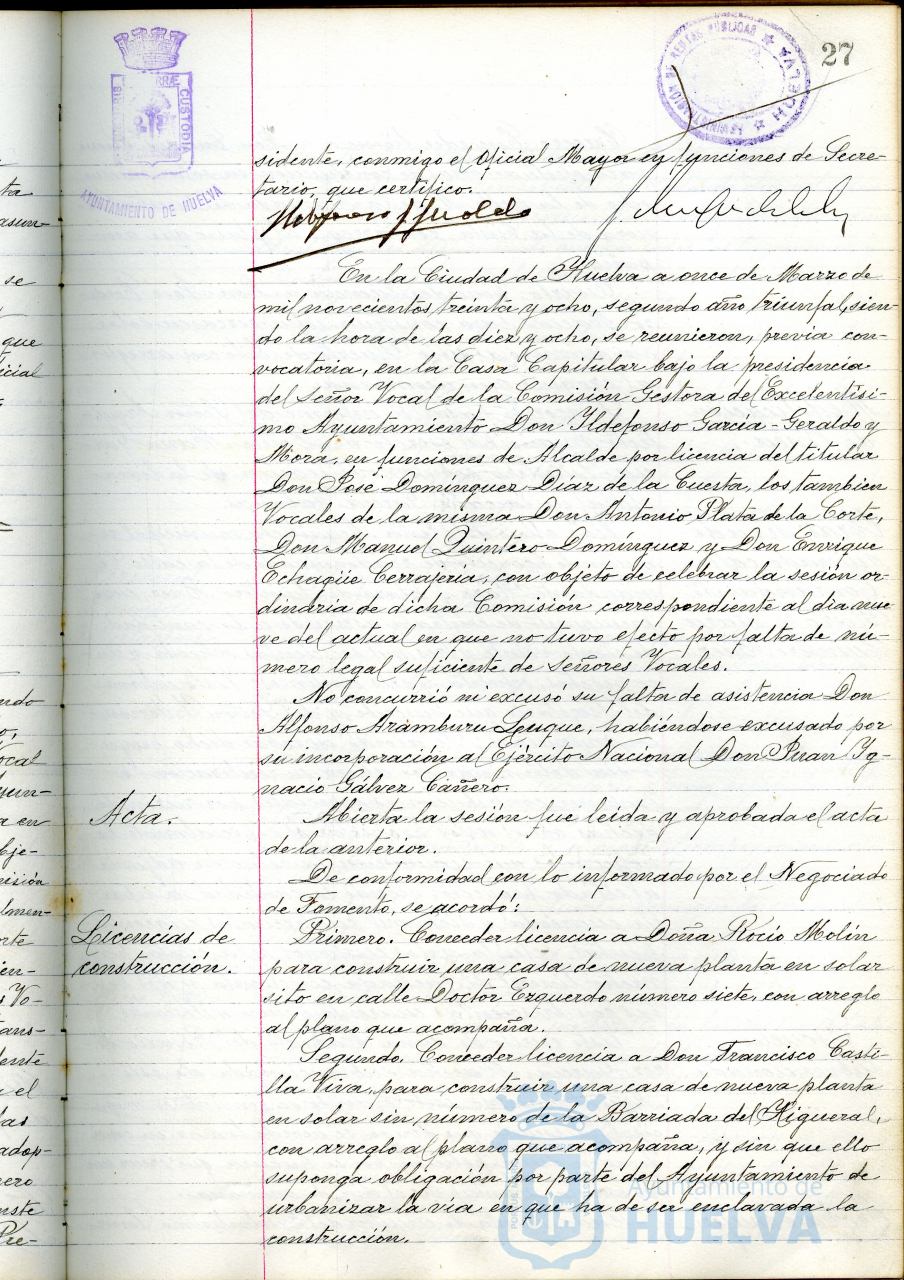 27
AYUNTAMIENTO DE HUELVA
sidente, conmigo el Oficial Mayor en funciones de Secre-
tario, que certifico.
En la Ciudad de Huelva a once de Marzo de
mil novecientos treinta y ocho, segundo año triunfal, sien-
do la hora de las diez y ocho, se reunieron, previa con-
vocatoria, en la Casa Capitular bajo la presidencia
del Señor Vocal de la Comisión Gestora del Excelentísi-
mo Ayuntamiento Don Ildefonso García-Geraldo y
Mora, en funciones de Alcalde por licencia del titular
Don José Domínguez Díaz de la Cuesta, los tambien
Vocales de la misma Don Antonio Plata de la Corte,
Don Manuel Quintero Domínguez y Don Enrique
Echagüe Cerrajería, con objeto de celebrar la sesión or-
dinaria de dicha Comisión correspondiente al dia nue-
ve del actual en que no tuvo efecto por falta de nú-
mero legal suficiente de Señores Vocales.
No concurrió ni excusó su falta de asistencia Don
Alfonso Aramburu Luque, habiéndose excusado por
su incorporación al Ejército Nacional Don Juan Ig-
nacio Gálvez Cañero.
Acta.
Abierta la sesión fué leida y aprobada el acta
de la anterior.
De conformidad con lo informado por el Negociado
de Fomento, se acordó:
Licencias de
construcción.
Primero. Conceder licencia a Doña Rocío Molín
para construir una casa de nueva planta en solar
sito en calle Doctor Ezquerdo número siete, con arreglo
al plano que acompaña.
Segundo. Conceder licencia a Don Francisco Casti-
lla Viva, para construir una casa de nueva planta
en solar sin número de la Barriada del Higueral,
con arreglo al plano que acompaña, y sin que ello
suponga obligación por parte del Ayuntamiento de
urbanizar la vía en que ha de ser enclavada la
construcción.
Ayuntamiento de
HUELVA